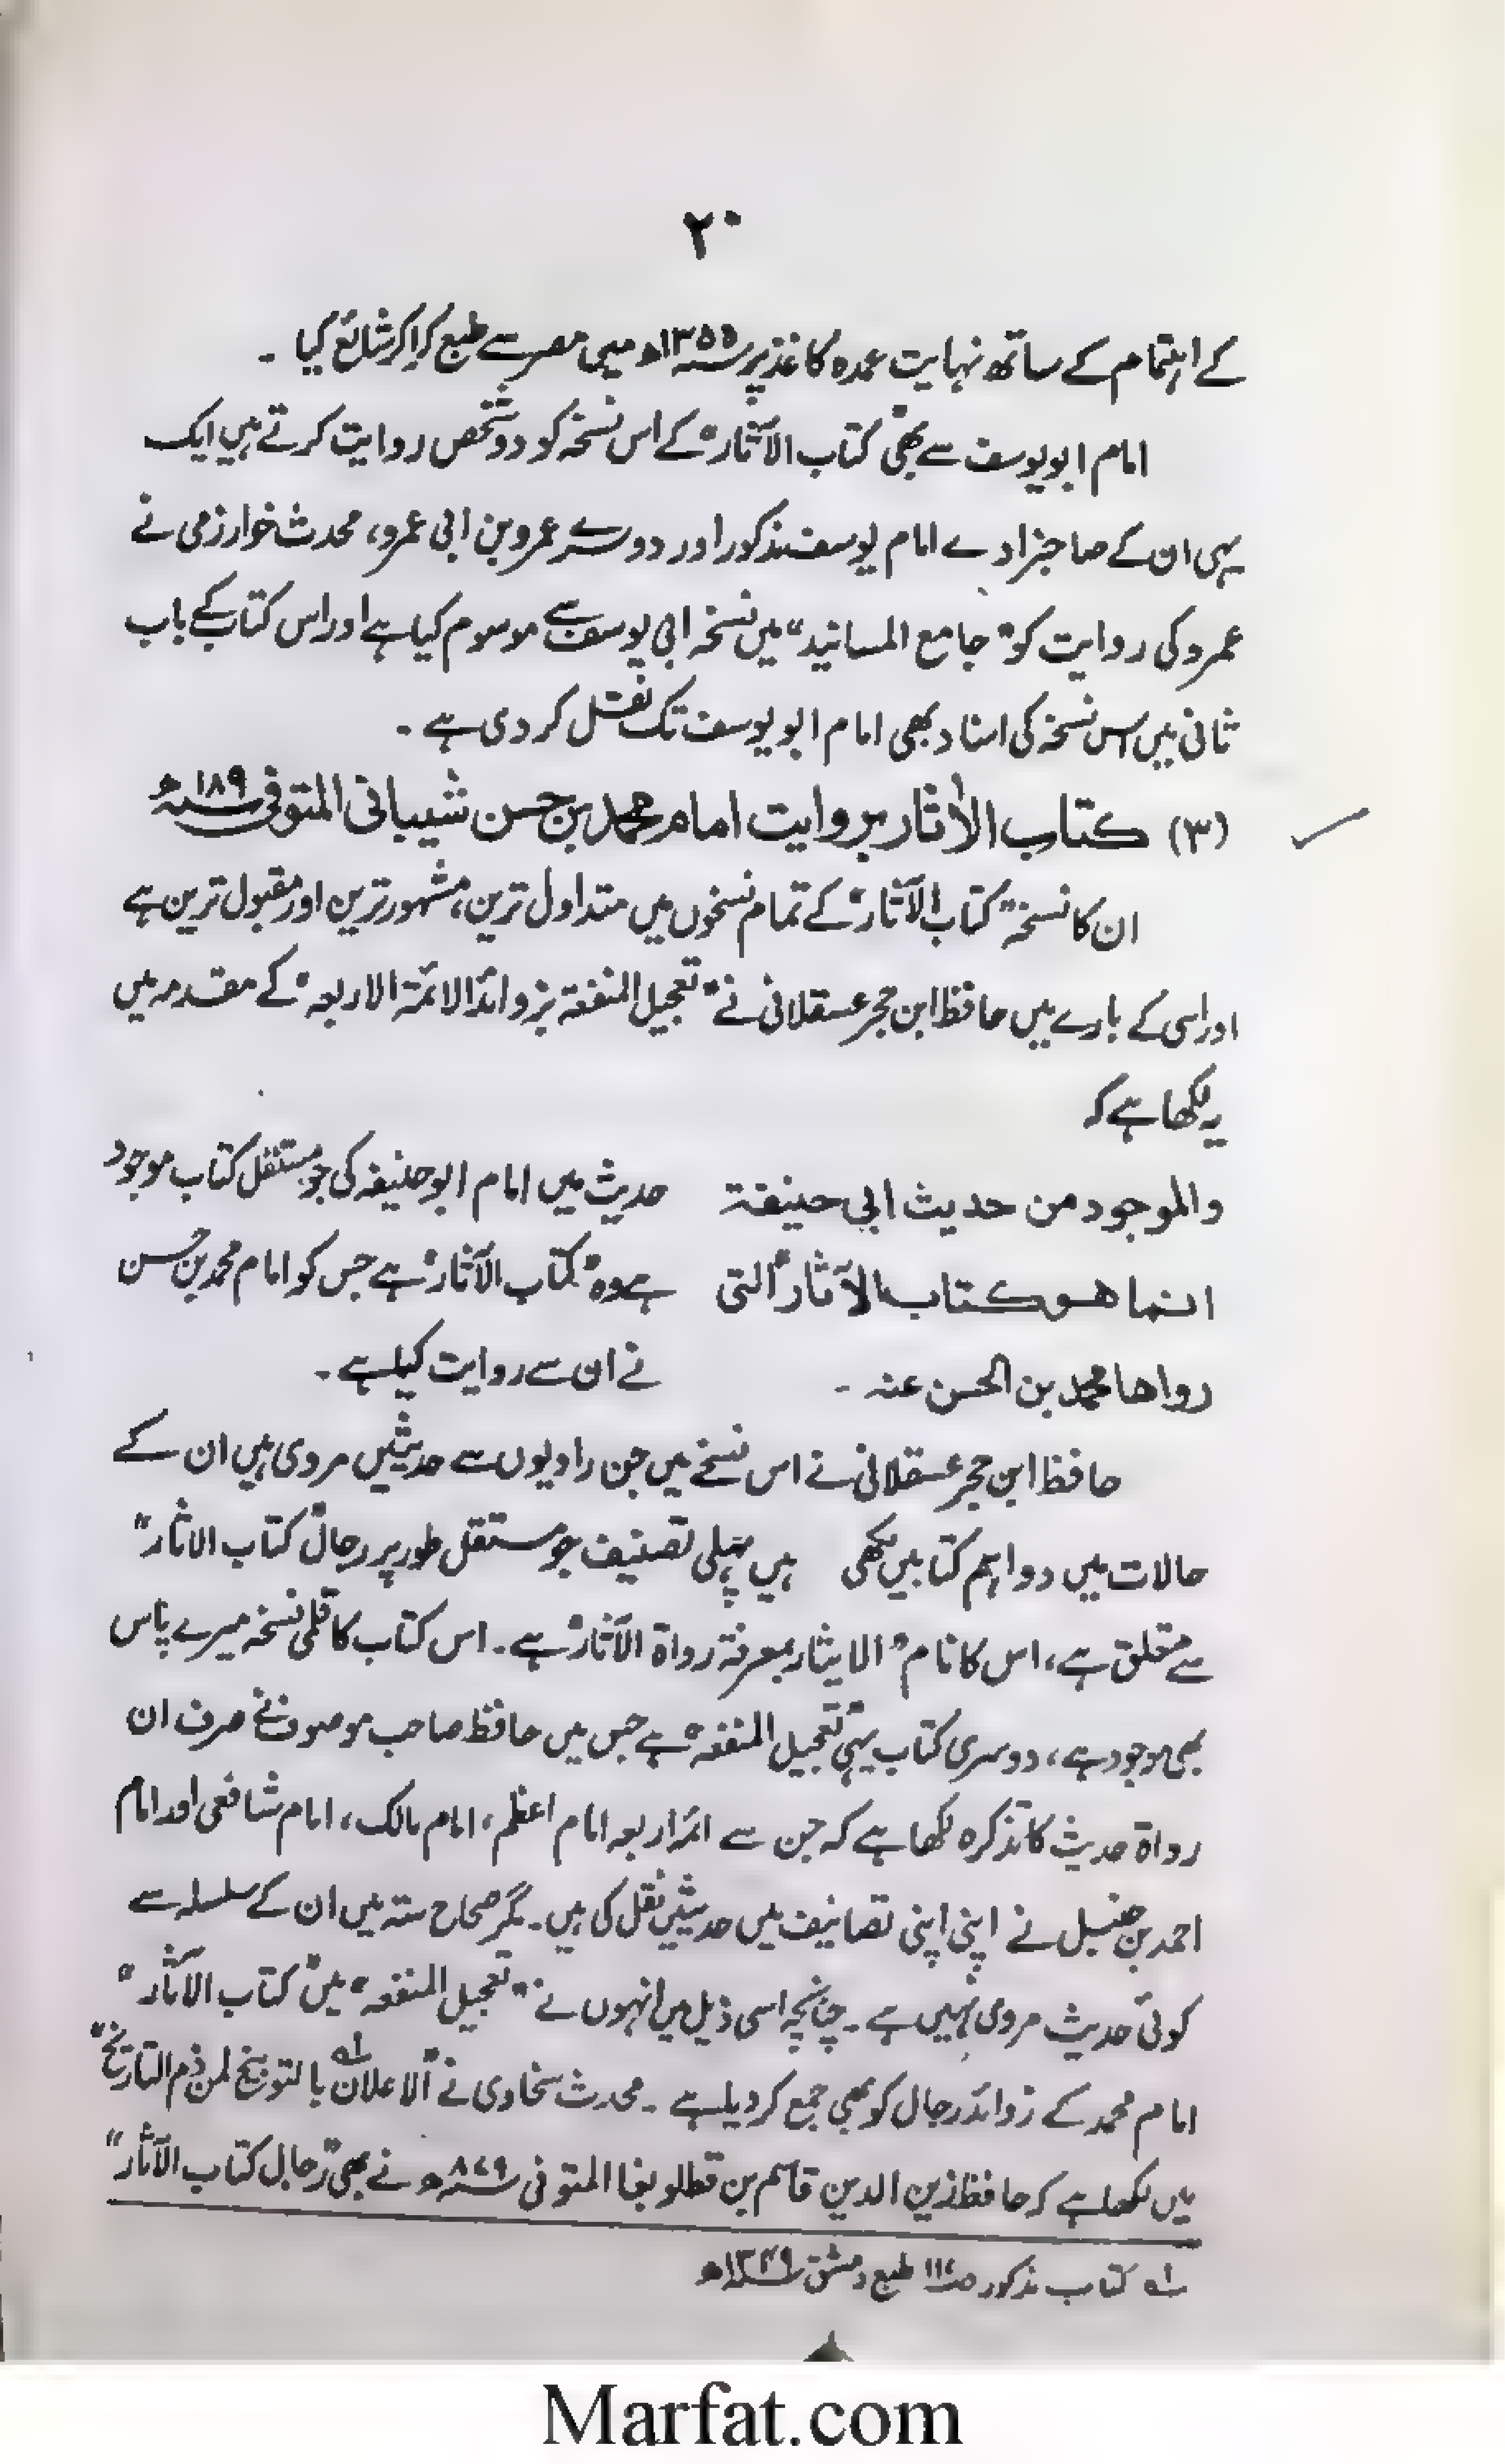 ۲۰
کے اہتمام کے ساتھ نہایت عمدہ کاغذ پر ۱۳۵۵ھ میں مصر سے طبع کرا کر شائع کیا ۔
امام ابو یوسف سے بھی "کتاب الآثار" کے اس نسخہ کو دو شخص روایت کرتے ہیں ایک
یہی ان کے صاحبزادے امام یوسف مذکور اور دوسرے عمرو بن ابی عمرو، محدث خوارزمی نے
عمرو کی روایت کو "جامع المسانید" میں نسخہ ابی یوسف سے موسوم کیا ہے اور اس کتاب کے باب
ثانی میں اس نسخہ کی اسناد بھی امام ابو یوسف تک نقل کر دی ہے ۔
(۳) کتاب الآثار بروایت امام محمد بن حسن شیبانی المتوفی ۱۸۹ھ
ان کا نسخہ "کتاب الآثار" کے تمام نسخوں میں متداول ترین، مشہور ترین اور مقبول ترین ہے
اور اسی کے بارے میں حافظ ابن حجر عسقلانی نے "تعجیل المنفعۃ بزوائد الائمۃ الاربعہ" کے مقدمہ میں
یہ لکھا ہے کہ
والموجود من حدیث ابی حنیفۃ حدیث میں امام ابو حنیفہ کی جو مستقل کتاب موجود
انما ھو کتاب الآثار التی ہے وہ "کتاب الآثار" ہے جس کو امام محمد بن حسن
رواھا محمد بن الحسن عنہ ۔ نے ان سے روایت کیا ہے ۔
حافظ ابن حجر عسقلانی نے اس نسخے میں جن راویوں سے حدیثیں مروی ہیں ان کے
حالات میں دو اہم کتابیں لکھی ہیں پہلی تصنیف جو مستقل طور پر رجال "کتاب الآثار"
سے متعلق ہے، اس کا نام "الایثار بمعرفۃ رواۃ الآثار" ہے ۔ اس کتاب کا قلمی نسخہ میرے پاس
بھی موجود ہے، دوسری کتاب یہی "تعجیل المنفعہ" ہے جس میں حافظ صاحب موصوف نے صرف ان
رواۃ حدیث کا تذکرہ لکھا ہے کہ جن سے ائمہ اربعہ امام اعظم، امام مالک، امام شافعی اور امام
احمد بن حنبل نے اپنی اپنی تصانیف میں حدیثیں نقل کی ہیں ۔ مگر صحاح ستہ میں ان کے سلسلہ سے
کوئی حدیث مروی نہیں ہے ۔ چنانچہ اسی ذیل میں انہوں نے "تعجیل المنفعہ" میں "کتاب الآثار"
امام محمد کے زوائد رجال کو بھی جمع کر دیا ہے ۔ محدث سخاوی نے "الاعلان بالتوبیخ لمن ذم التاریخ" ۱ھ
میں لکھا ہے کہ حافظ زین الدین قاسم بن قطلوبغا المتوفی ۸۷۹ھ نے بھی "رجال کتاب الآثار"
۱ھ کتاب مذکور ص ۱۱۷ طبع دمشق ۱۳۴۹ھ
Marfat.com